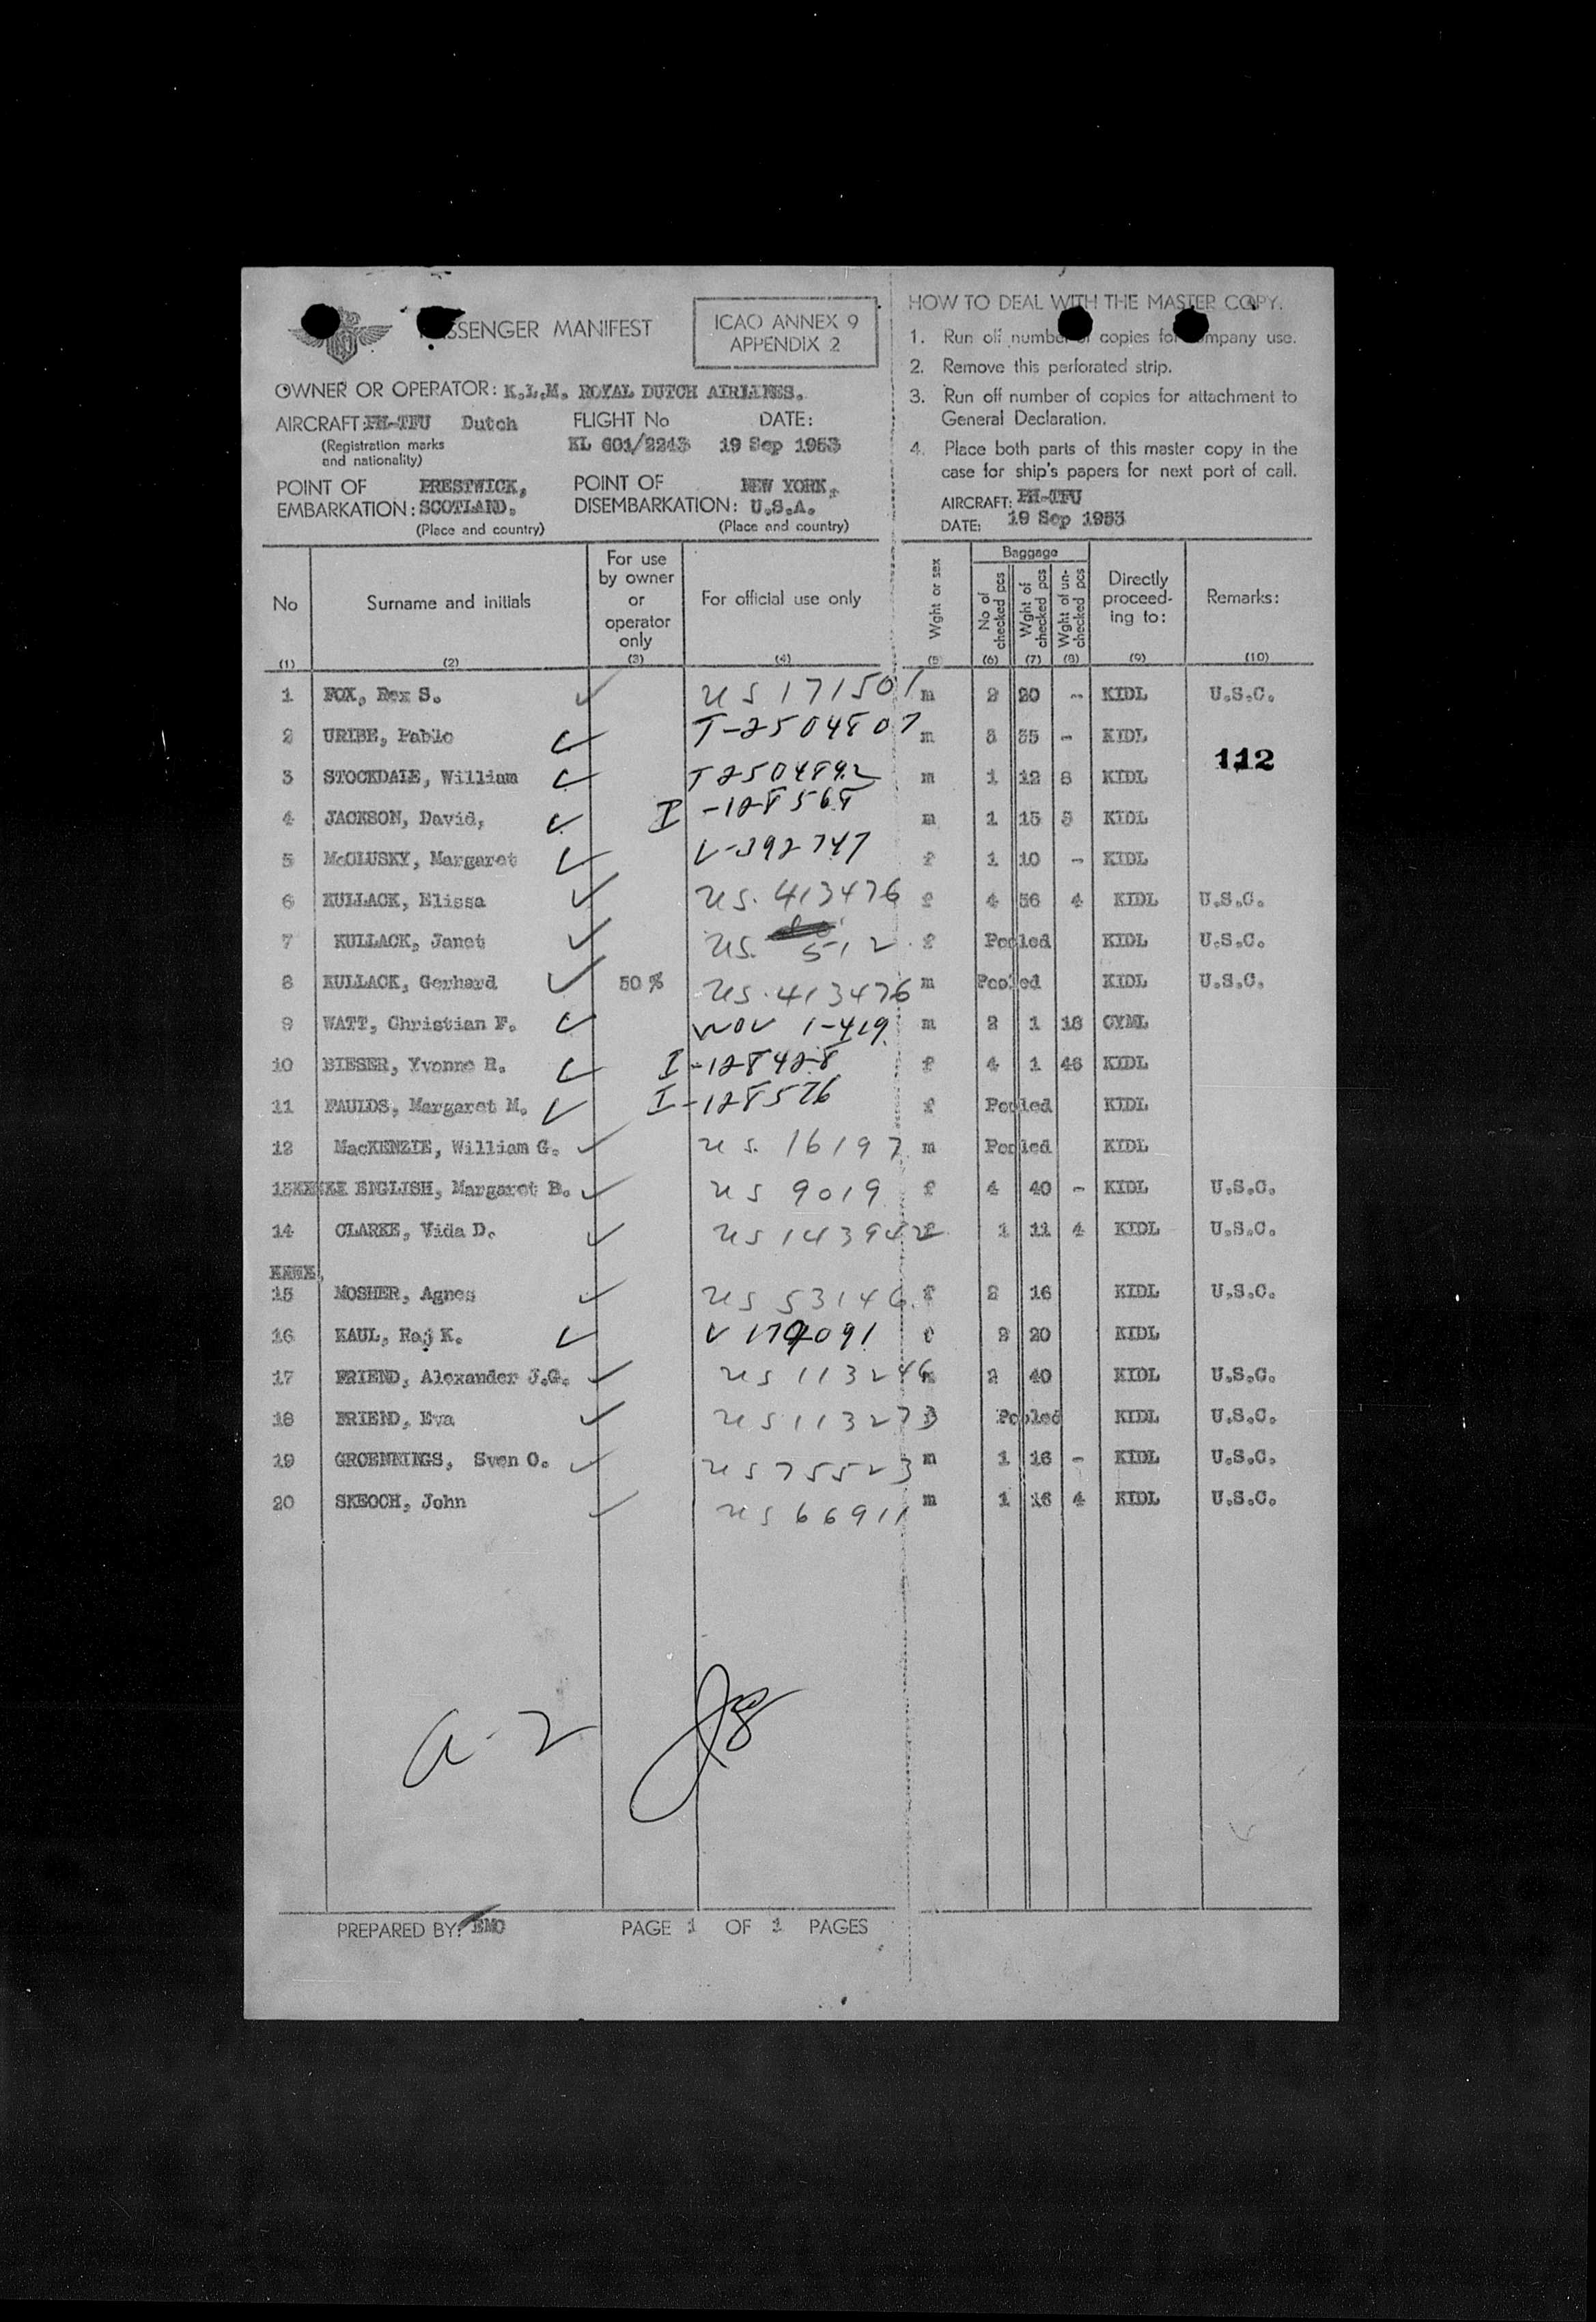 PASSENGER MANIFEST
ICAO ANNEX 9
APPENDIX 2
OWNER OR OPERATOR: K.L.M. ROYAL DUTCH AIRLINES.
AIRCRAFT: PH-TFU Dutch FLIGHT No DATE:
(Registration marks KL 601/2243 19 Sep 1953
and nationality)
POINT OF PRESTWICK, POINT OF NEW YORK,
EMBARKATION: SCOTLAND. DISEMBARKATION: U.S.A.
(Place and country) (Place and country)
HOW TO DEAL WITH THE MASTER COPY.
1. Run off number of copies for company use.
2. Remove this perforated strip.
3. Run off number of copies for attachment to
General Declaration.
4. Place both parts of this master copy in the
case for ship's papers for next port of call.
AIRCRAFT: PH-TFU
DATE: 19 Sep 1953
No Surname and initials For use by owner or operator only For official use only Wght or sex Baggage No of checked pcs Wght of checked pcs Wght of un-checked pcs Directly proceed-ing to: Remarks:
(1) (2) (3) (4) (5) (6) (7) (8) (9) (10)
1 FOX, Rex S. US 171501 m 2 20 - KIDL U.S.C.
2 URIBE, Pablo T-2504807 m 3 35 - KIDL
112
3 STOCKDALE, William T 2504892 m 1 12 8 KIDL
4 JACKSON, David, I-128568 m 1 15 5 KIDL
5 McCLUSKY, Margaret V-392747 f 1 10 - KIDL
6 KULLACK, Elissa US. 413476 f 4 56 4 KIDL U.S.C.
7 KULLACK, Janet US. 512 f Pooled KIDL U.S.C.
8 KULLACK, Gerhard 50 % US. 413476 m Pooled KIDL U.S.C.
9 WATT, Christian F. WOV 1-419 m 2 1 18 CYML
10 BIESER, Yvonne R. I-128428 f 4 1 46 KIDL
11 FAULDS, Margaret M. I-128576 f Pooled KIDL
12 MacKENZIE, William G. US. 16197 m Pooled KIDL
13 ENGLISH, Margaret B. US 9019 f 4 40 - KIDL U.S.C.
14 CLARKE, Vida D. US 143942 1 11 4 KIDL U.S.C.
15 MOSHER, Agnes US 53146 f 2 16 KIDL U.S.C.
16 KAUL, Raj K. V 179091 2 20 KIDL
17 FRIEND, Alexander J.G. US 113246 2 40 KIDL U.S.C.
18 FRIEND, Eva US 113273 Pooled KIDL U.S.C.
19 GROENNINGS, Sven O. US 75523 m 1 16 - KIDL U.S.C.
20 SKEOCH, John US 66911 m 1 16 4 KIDL U.S.C.
a-2
PREPARED BY: EMO PAGE 1 OF 1 PAGES